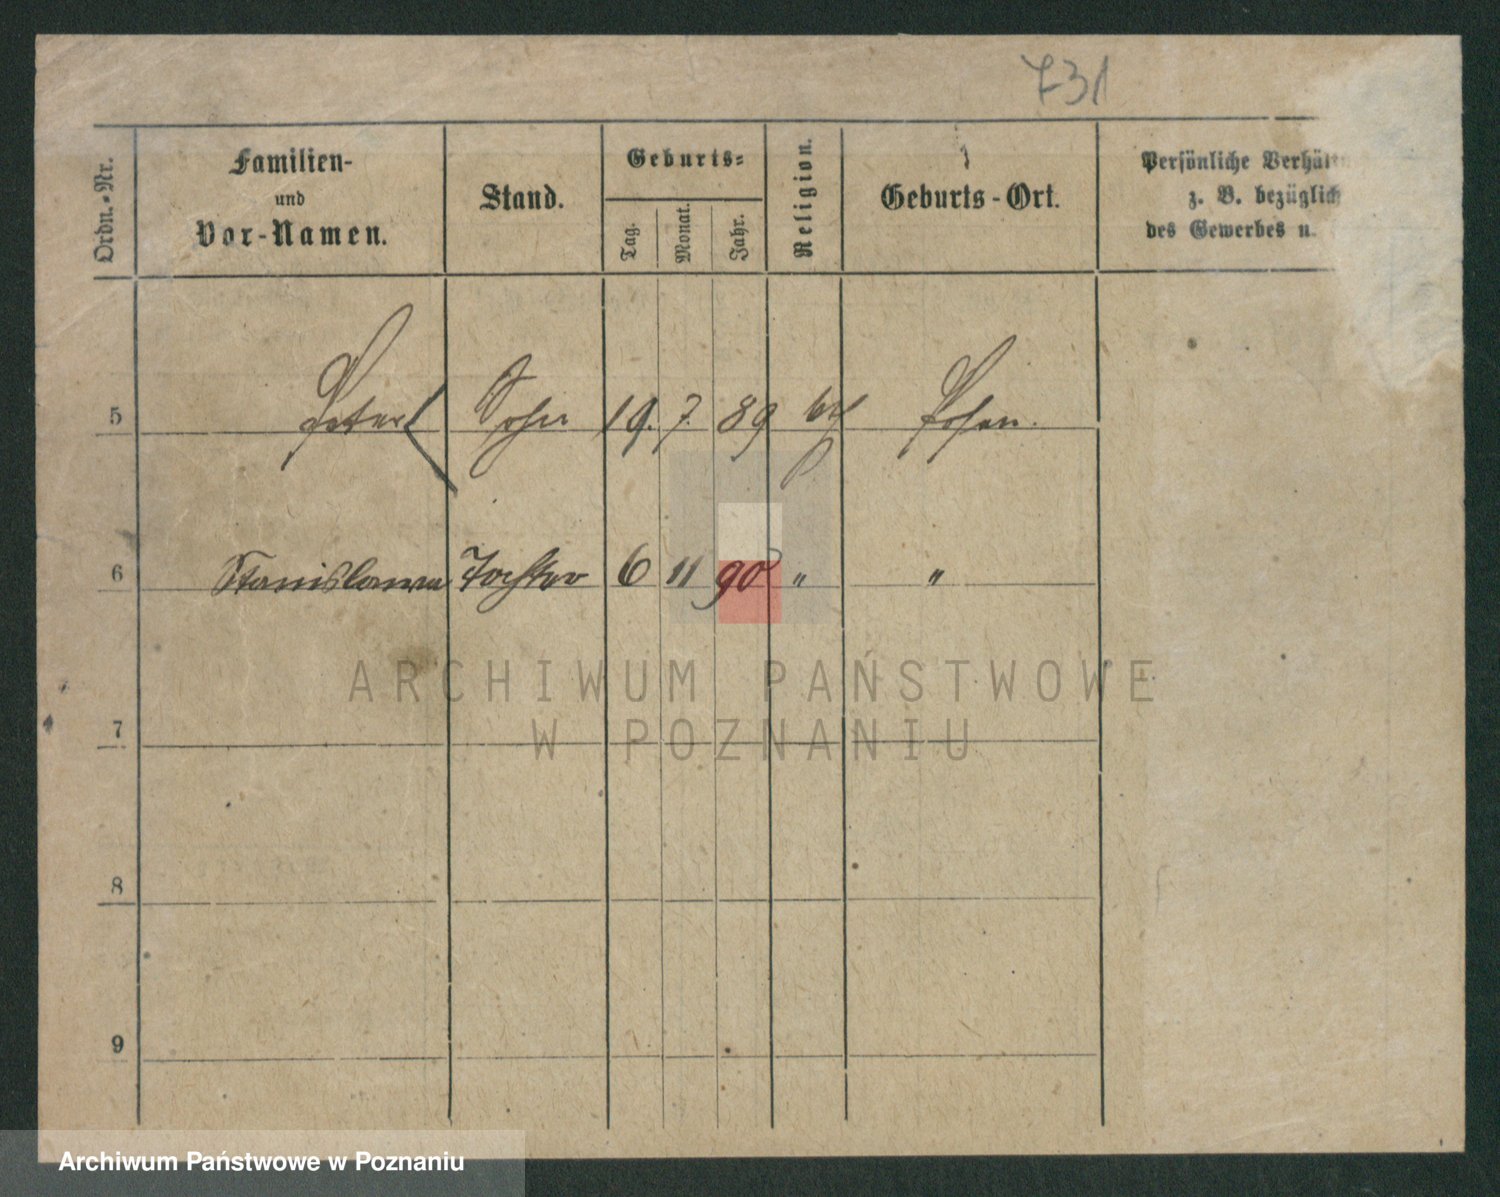 731
Ordn.-Nr.
Familien-
und
Vor-Namen.
Stand.
Geburts-
Tag.
Monat.
Jahr.
Religion.
Geburts-Ort.
Persönliche
z. B. bezüglich
des Gewerbes u.
5 Peter Sohn 19. 7. 89 Posen.
6 Stanislawa Tochter 6 11 90 " "
7
8
9
ARCHIWUM PAŃSTWOWE
W POZNANIU
Archiwum Państwowe w Poznaniu